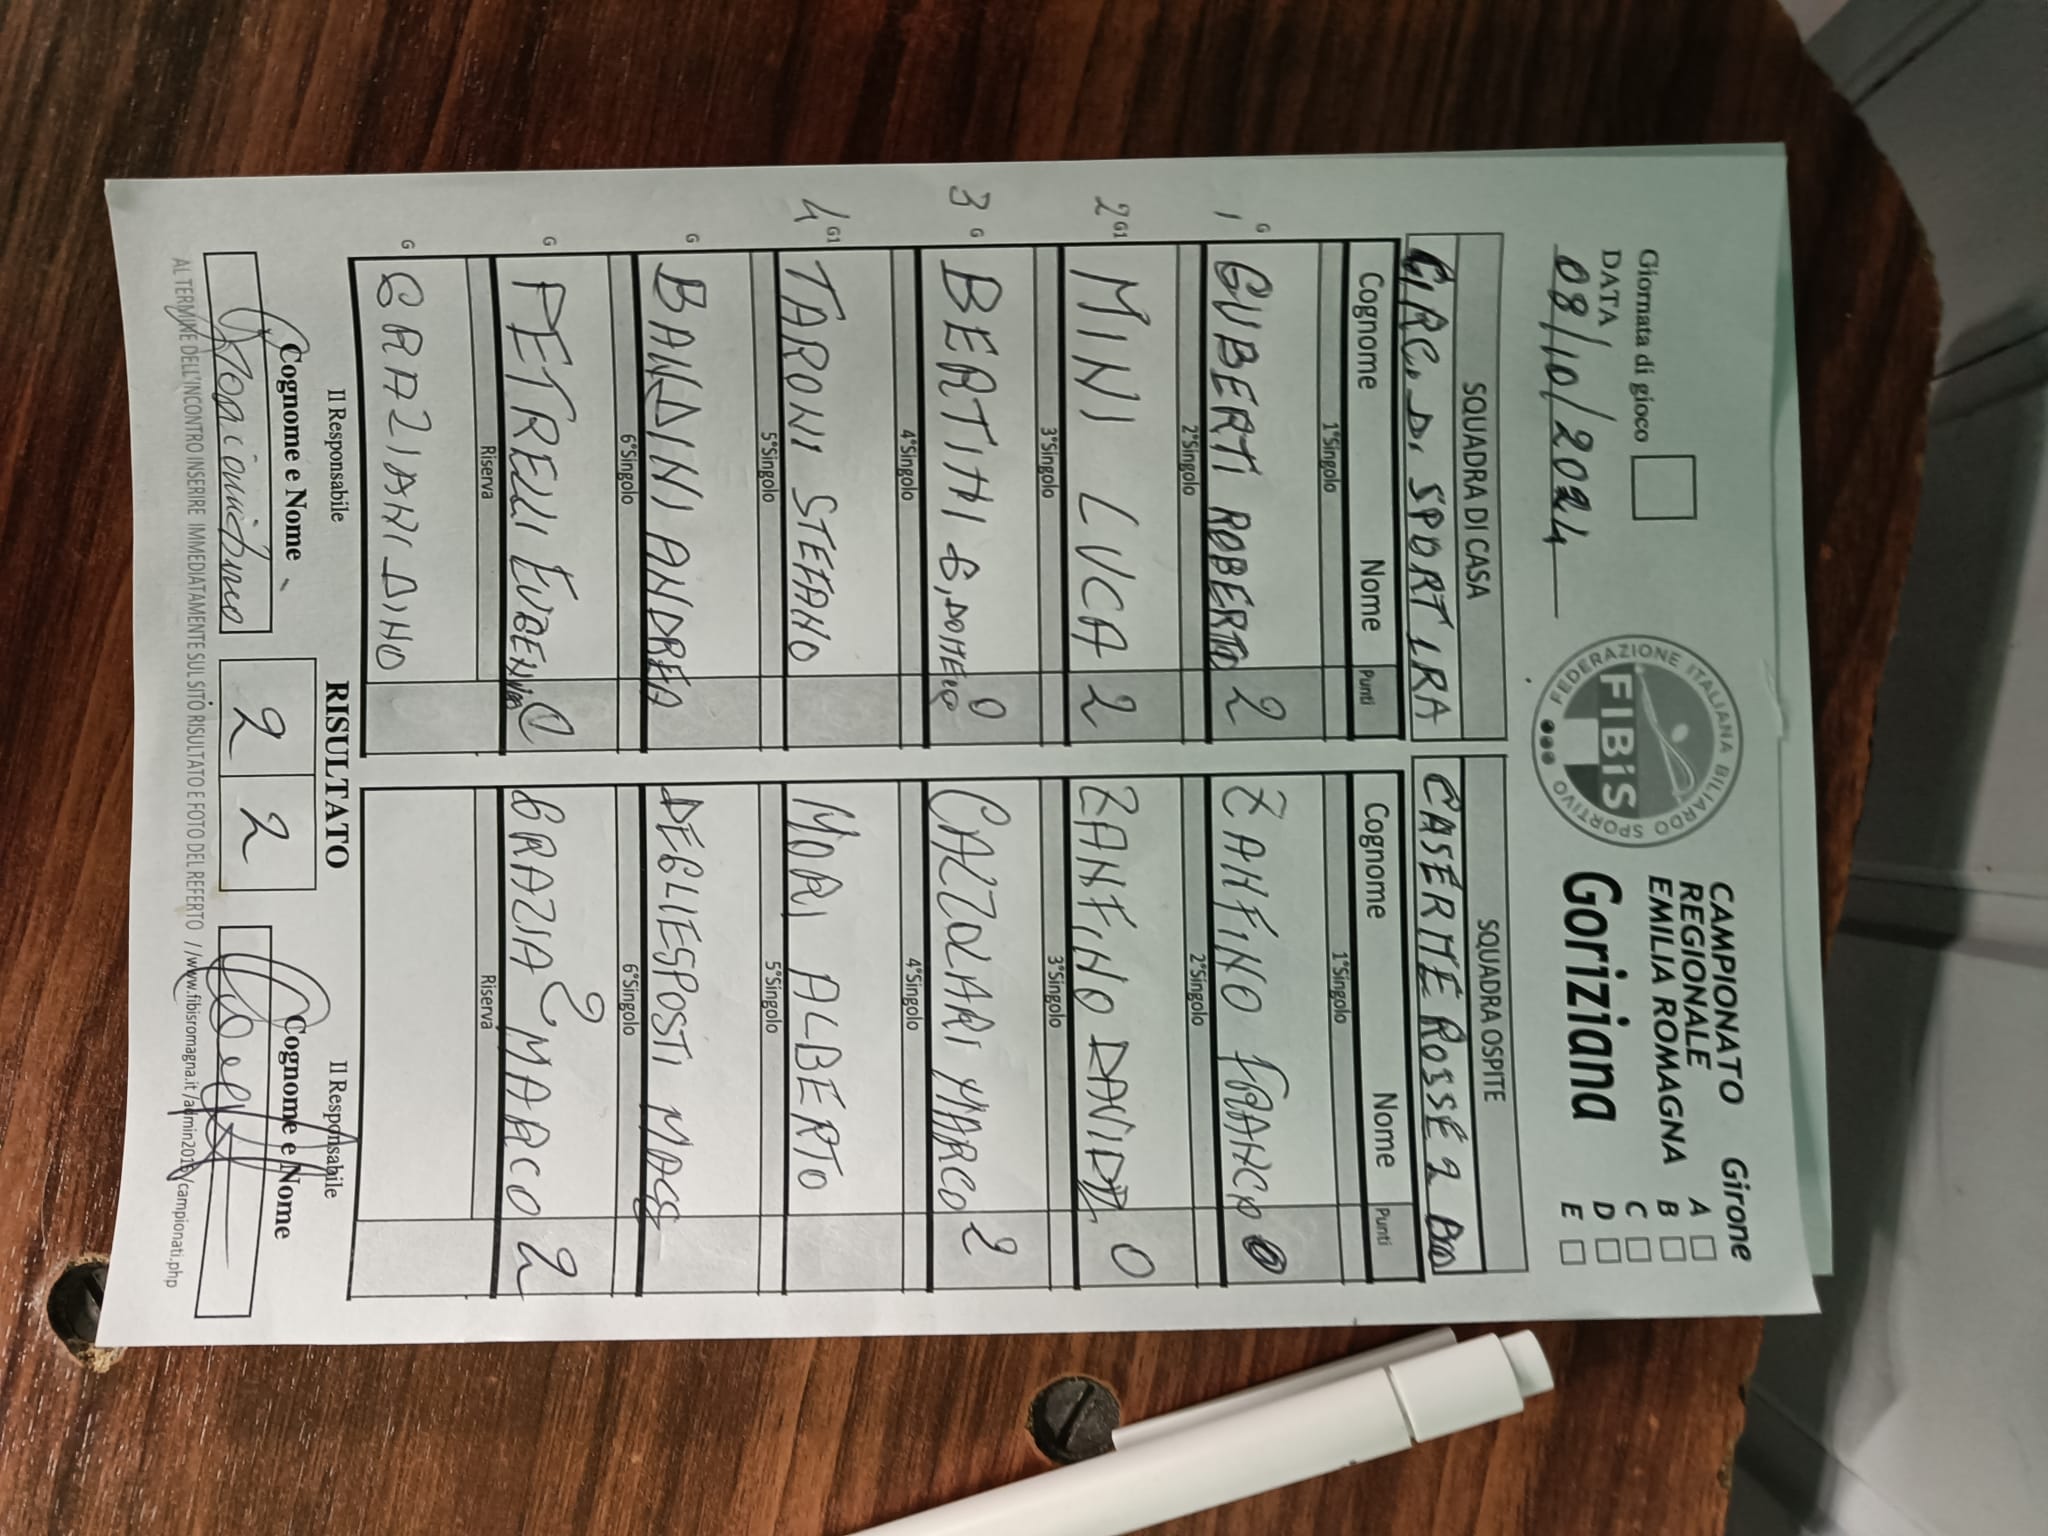 CAMPIONATO
REGIONALE
EMILIA ROMAGNA
Goriziana
Girone
A
B
C
D
E
Giornata di gioco
DATA
08/10/2024
FEDERAZIONE ITALIANA BILIARDO SPORTIVO
FIBiS
SQUADRA DI CASA
SQUADRA OSPITE
CIRC. DI SPORT IRA
CASERME ROSSE 2 BO
Cognome Nome Punti
Cognome Nome Punti
1°Singolo
1°Singolo
1 G GUBERTI ROBERTO 2
ZANFINO FRANCO 0
2°Singolo
2°Singolo
2 G1 MINI LUCA 2
ZANFINO DAVIDE 0
3°Singolo
3°Singolo
3 G BERTINI G, DOMENICO 0
CALZOLARI MARCO 2
4°Singolo
4°Singolo
4 G1 TARONI STEFANO
MORI ALBERTO
5°Singolo
5°Singolo
G BANDINI ANDREA
DEGLIESPOSTI
6°Singolo
6°Singolo
G PETRELLI EUGENIO 0
GRAZIA MARCO 2
Riserva
Riserva
G GRAZIANI DINO
Il Responsabile
RISULTATO
Il Responsabile
Cognome e Nome
2 2
Cognome e Nome
AL TERMINE DELL'INCONTRO INSERIRE IMMEDIATAMENTE SUL SITO RISULTATO E FOTO DEL REFERTO //www.fibisromagna.it/admin2016/campionati.php